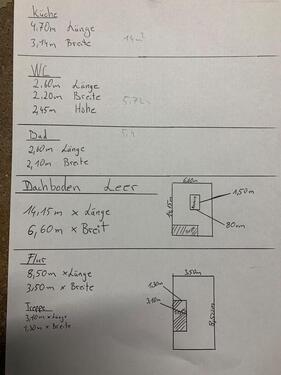 Küche
4.70m Länge
3,14m Breite
14m²
WC
2,60m Länge
2.20m Breite
2,45m Höhe
5.72
Bad
2,60m Länge
2,10m Breite
5,4
Dachboden Leer
14,15m x Länge
6,60m x Breit
6,60m
14,15m
1,50m
80cm
Flur
8,50m x Länge
3,50m x Breite
Treppe
3,10m x Länge
1,30m x Breite
3,50m
1,30m
3,10m
8,50m